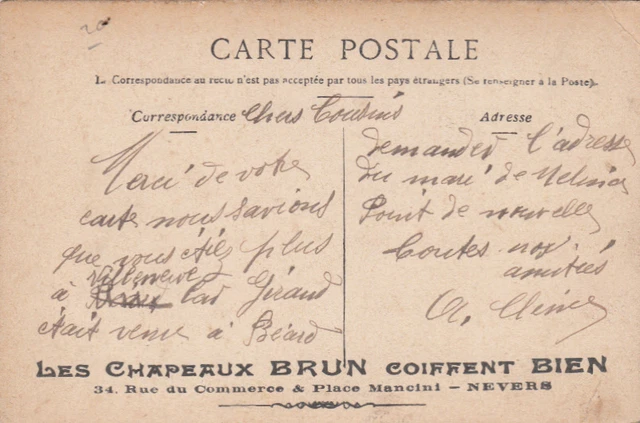 20
CARTE POSTALE
La Correspondance au recto n'est pas acceptée par tous les pays étrangers (Se renseigner à la Poste).
Correspondance Chers Cousins
Adresse
Merci de votre
carte nous savions
que vous étiez plus
à Villeneuve car Giraud
était venu à Béard
demander l'adresse
du mari de
Point de nouvelles
Toutes nos
amitiés
A.
LES CHAPEAUX BRUN COIFFENT BIEN
34, Rue du Commerce & Place Mancini – NEVERS